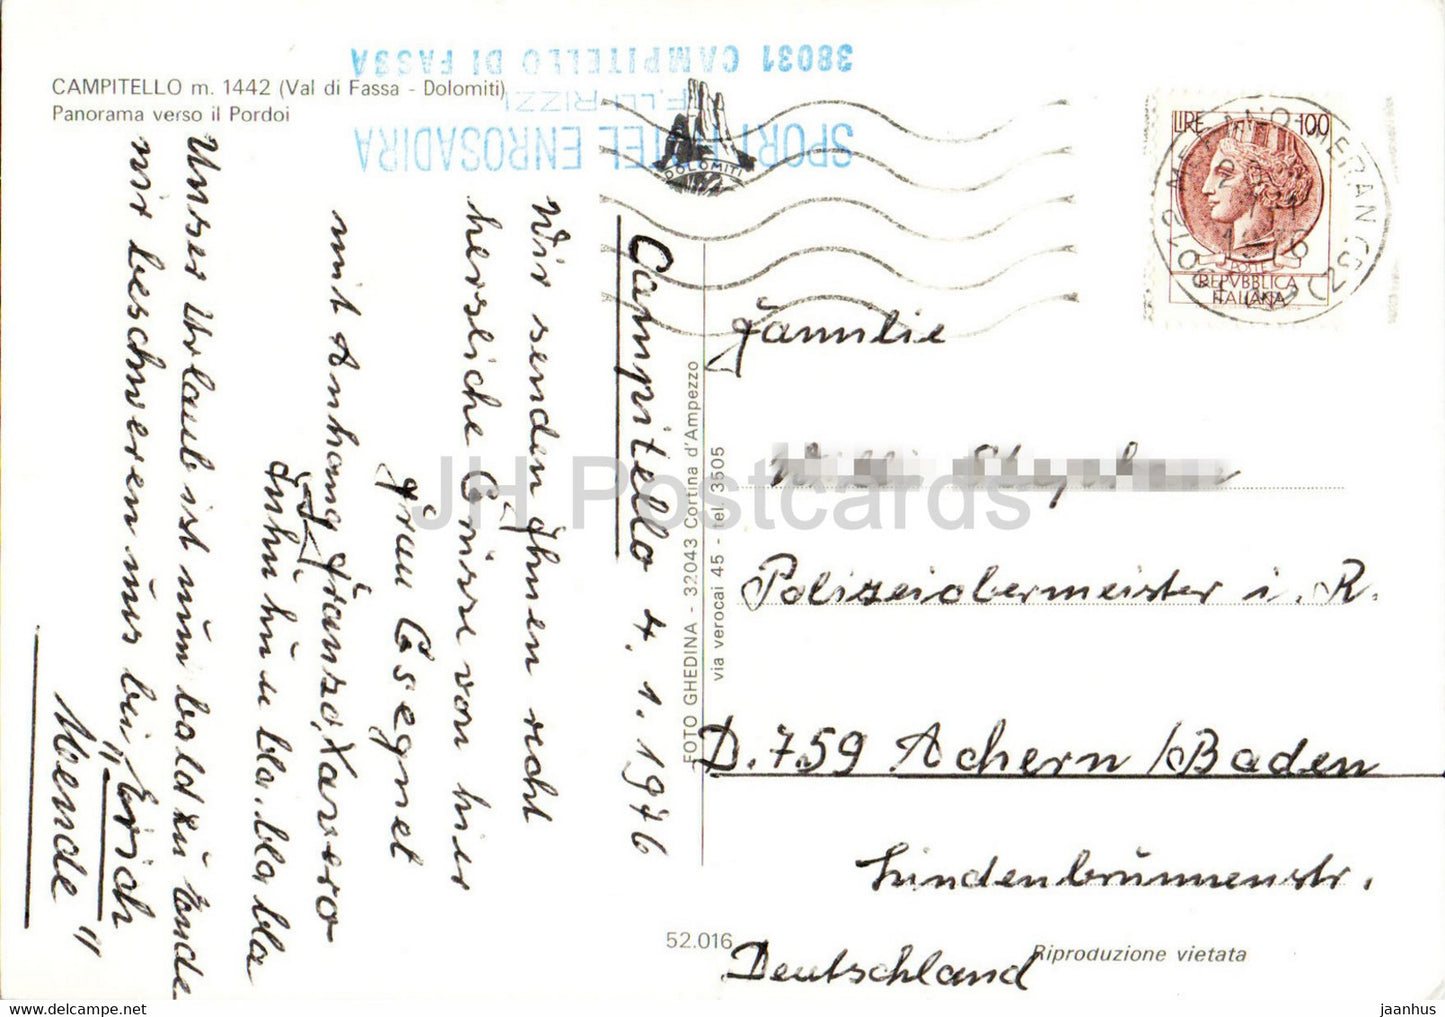 CAMPITELLO m. 1442 (Val di Fassa - Dolomiti)
Panorama verso il Pordoi
SPORT HOTEL ENROSADIRA
F.LLI RIZZI
38031 CAMPITELLO DI FASSA
DOLOMITI
LIRE 100
POSTE
REPVBBLICA
ITALIANA
MERANO - MERAN
Campitello 4. 1. 1976
Wir senden Ihnen recht
herzliche Grüsse von hier
Frau Csegnel
mit Anhang Franzo, Xavero
bla. bla bla
Unser Urlaub ist nun bald zu Ende
wir beschweren uns bei "Erich
Mende"
Familie
Polizeiobermeister i. R.
D. 759 Achern / Baden
Lindenbrunnenstr.
Deutschland
FOTO GHEDINA - 32043 Cortina d'Ampezzo
via verocai 45 - tel 3505
52.016
Riproduzione vietata
JH Postcards
www.delcampe.net
jaanhus